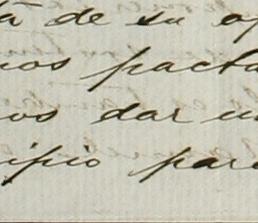 tá de su op
nos pacta
os dar un
cipio para